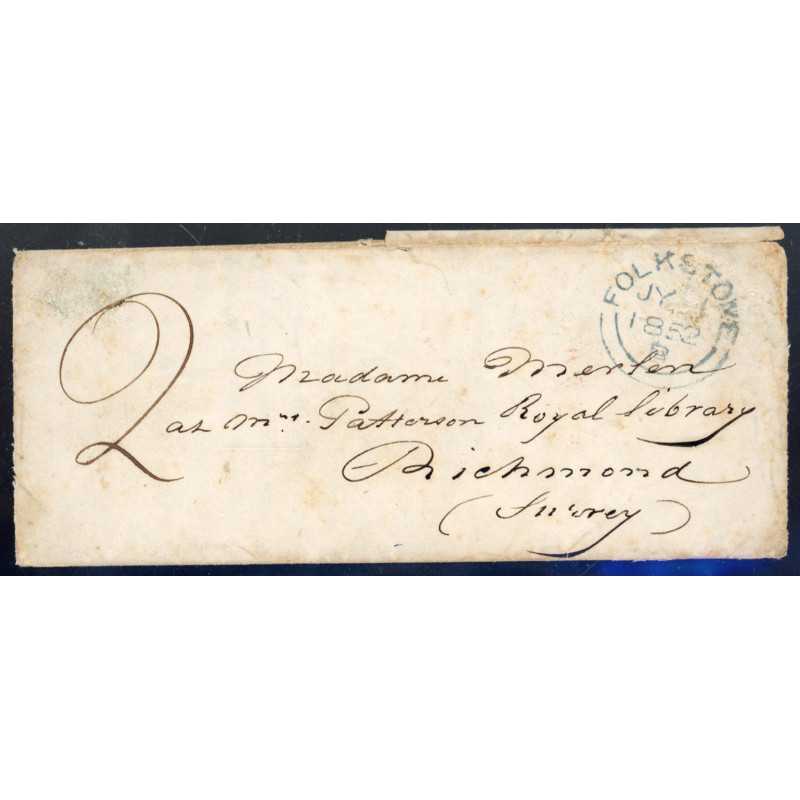 FOLKSTONE
JY
1852
2
Madame Merlen
at Mrs. Patterson Royal Library
Richmond
(Surrey)